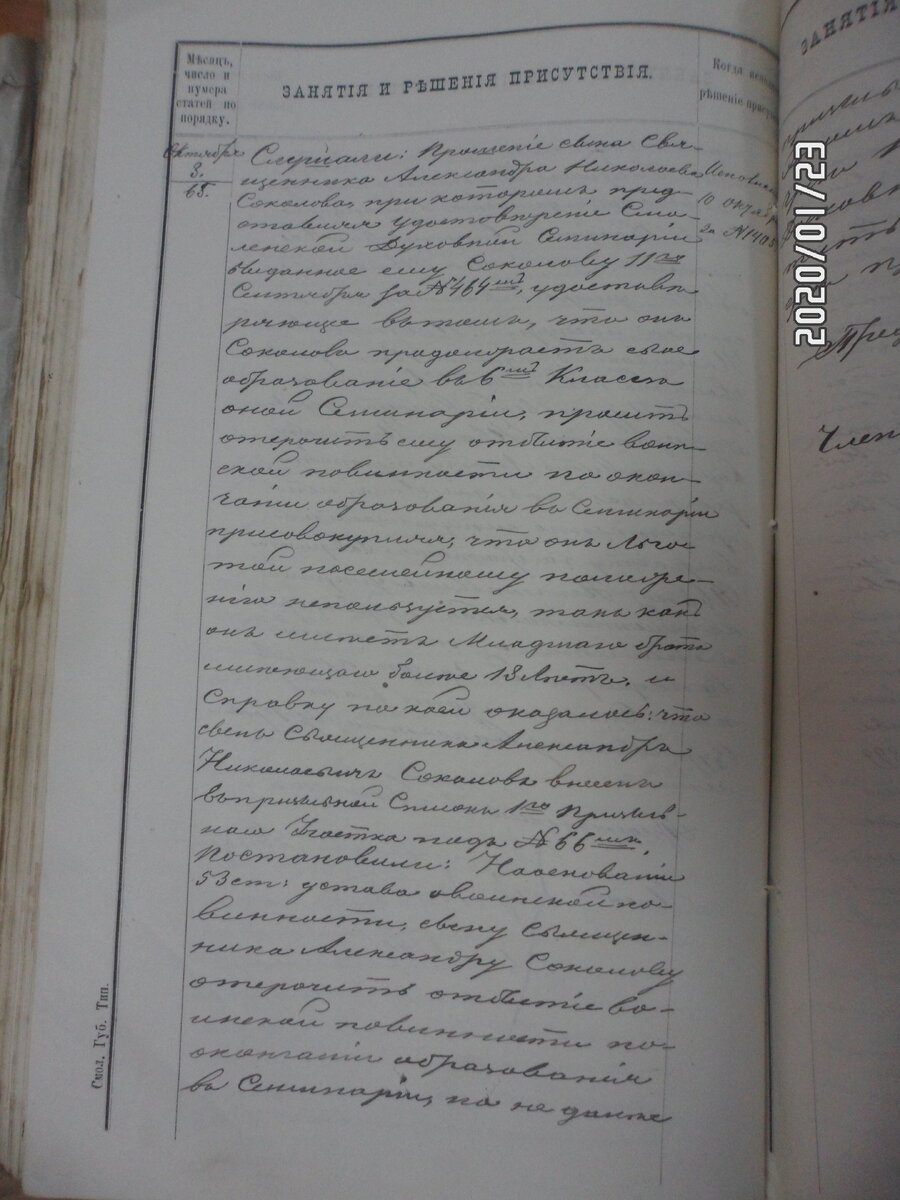 Мѣсяцъ,
число и
нумера
статей по
порядку.
ЗАНЯТІЯ И РѢШЕНІЯ ПРИСУТСТВІЯ.
Когда
рѣшеніе
Октября
3.
65.
Слушали: Прошеніе сына Свя-
щенника Александра Николаева
Соколова, при которомъ пред-
ставилъ удостовѣреніе Смо-
ленской Духовной Семинаріи
выданное ему Соколову 11го
Сентября за №464мъ, удостовѣ
ряющее въ томъ, что онъ
Соколовъ продолжаетъ свое
образованіе въ 6мъ Классѣ
оной Семинаріи, проситъ
отсрочить ему отбытіе воин-
ской повинности по окон-
чаніи образованія въ Семинаріи
присовокупляя, что онъ льго-
той по семейному положе-
нію непользуется, такъ какъ
онъ имѣетъ Младшаго брата
имѣющаго болѣе 18 лѣтъ. и
Справку по коей оказалось: что
сынъ Священника Александръ
Николаевичъ Соколовъ внесенъ
въ призывной Списокъ 1го Призыв-
наго Участка подъ №66мъ.
Постановили: На основаніи
53 ст: устава о воинской по-
винности, сыну Священ-
ника Александру Соколову
отсрочить отбытіе во-
инской повинности по-
окончаніи образованія
въ Семинаріи, но не далѣе
10 октября
за №1405
Смол. Губ. Тип.
ЗАНЯТІЯ
Член
2020/01/23